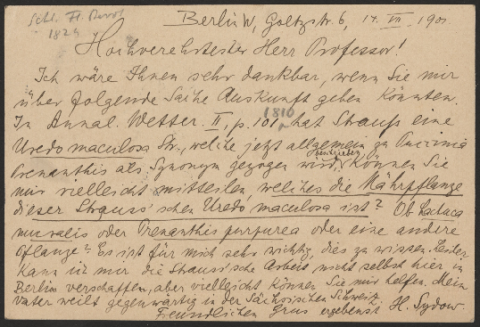 Berlin W, Goltzstr. 6, 17. VII. 1901
1829
Hochverehrtester Herr Professor!
Ich wäre Ihnen sehr dankbar, wenn Sie mir
über folgende Sache Auskunft geben könnten.
1810
In Annal. Wetter. II, p. 101 hat Strauss eine
Uredo maculosa Str., welche jetzt allgemein zu Puccinia
Prenanthis als Synonym gezogen wird. Können Sie
mir vielleicht mitteilen, welches die Nährpflanze
dieser Strauss'schen Uredo maculosa ist? Ob Lactuca
muralis oder Prenanthes purpurea oder eine andere
Pflanze? Es ist für mich sehr wichtig, dies zu wissen. Leider
kann ich mir die Strauss'sche Arbeit nicht selbst hier in
Berlin verschaffen, aber vielleicht können Sie mir helfen. Mein
Vater weilt gegenwärtig in der Sächsischen Schweiz.
Freundlichen Gruss ergebenst H. Sydow.